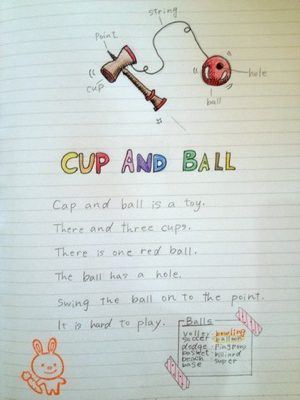 string
Point
cup
hole
ball
CUP AND BALL
Cap and ball is a toy.
There and three cups.
There is one red ball.
The ball has a hole.
Swing the ball on to the point.
It is hard to play.
Balls
volley bowling
soccer balloon
dodge pingpong
basket billiard
beach super
base